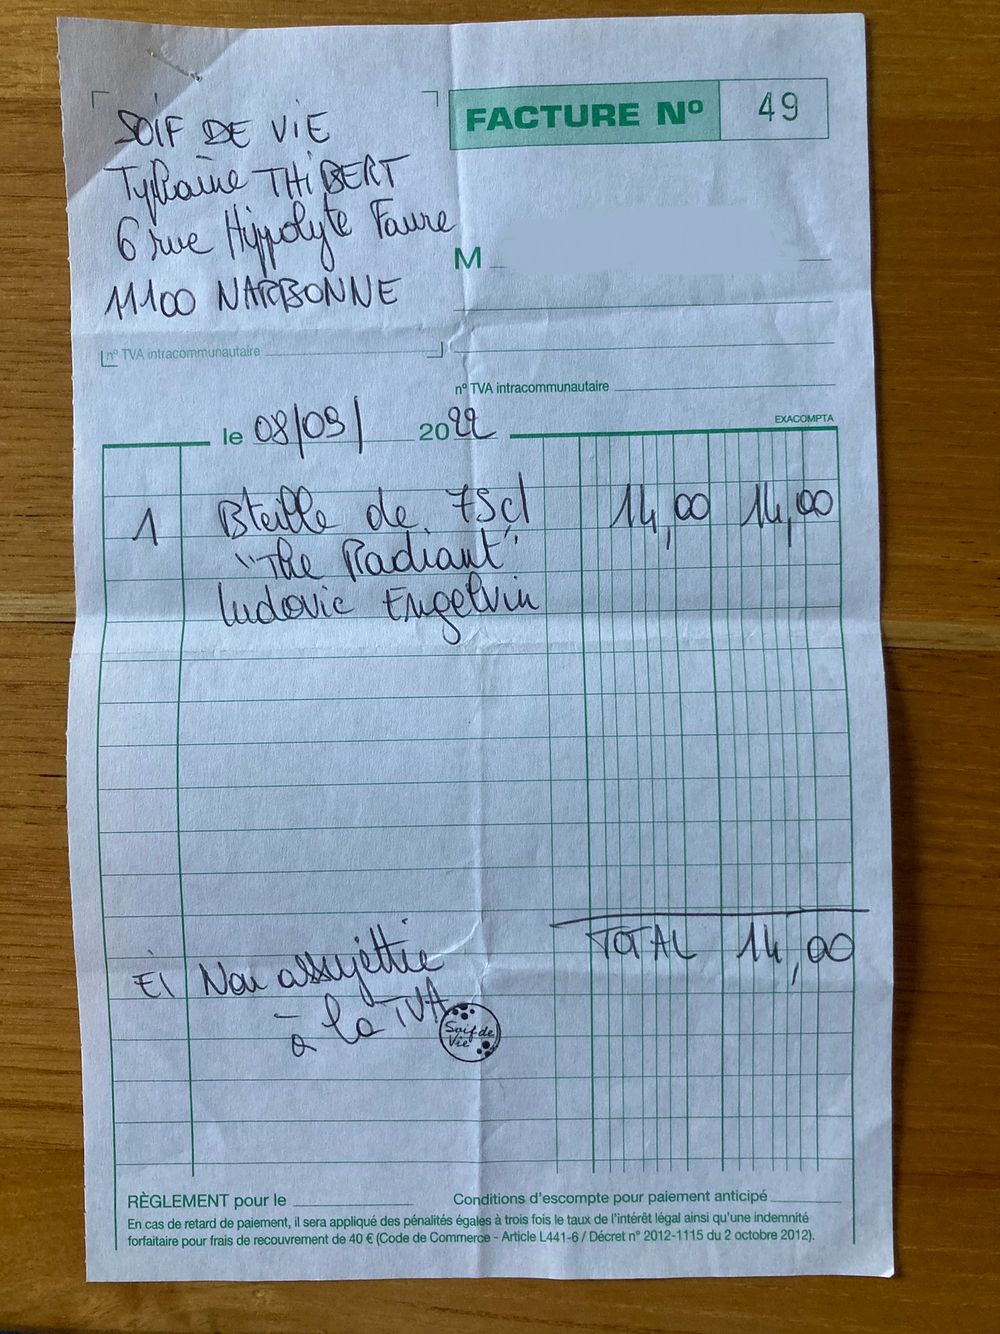 SOIF DE VIE
Typhaine THIBERT
6 rue Hippolyte Faure
11100 NARBONNE
n° TVA intracommunautaire
FACTURE N° 49
M
n° TVA intracommunautaire
EXACOMPTA
le 08/09/ 2022
1 Bteille de 75cl 14,00 14,00
"The Radiant"
Ludovic Engelvin
TOTAL 14,00
EI Non assujettie
à la TVA
Soif de
Vie
RÈGLEMENT pour le
Conditions d'escompte pour paiement anticipé
En cas de retard de paiement, il sera appliqué des pénalités égales à trois fois le taux de l'intérêt légal ainsi qu'une indemnité
forfaitaire pour frais de recouvrement de 40 € (Code de Commerce - Article L441-6 / Décret n° 2012-1115 du 2 octobre 2012).